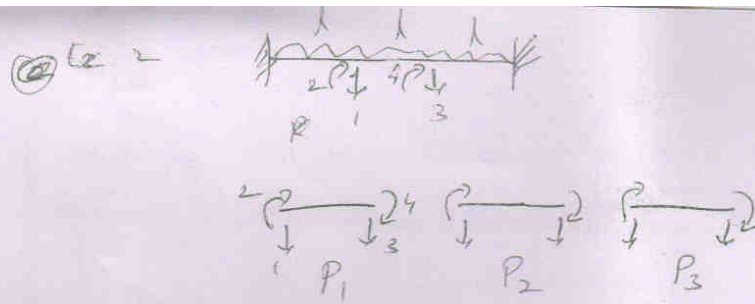 Ex 2
λ λ λ
2 4
1 3
2 4
1 3
P1 P2 P3